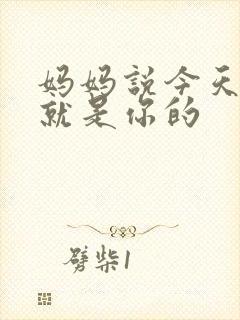 妈妈説今天
就是你的
劈柴1